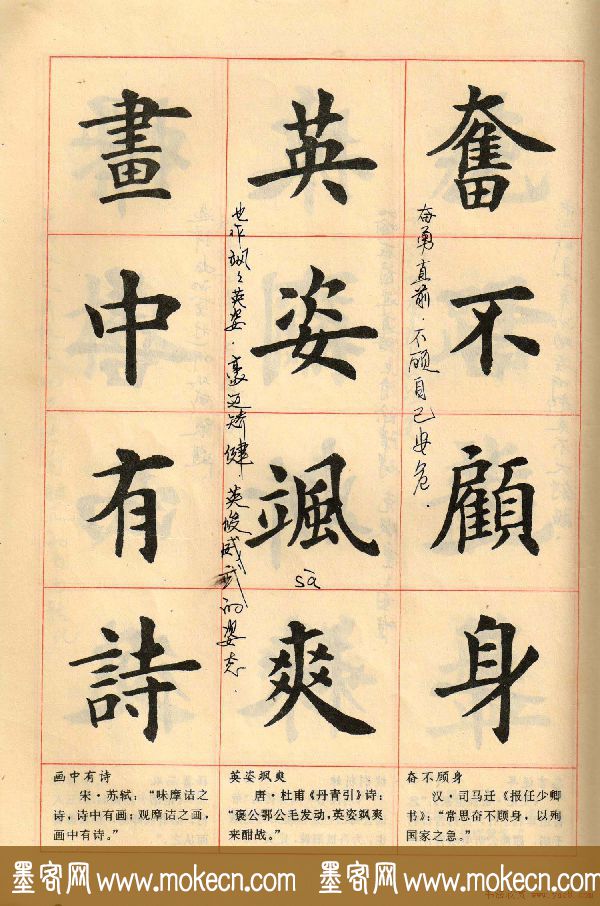 奮不顧身
奋勇直前．不顾自己安危．
英姿颯爽
sà
也作飒飒英姿．豪迈矫健 英俊威武的姿态．
畫中有詩
奋不顾身
汉·司马迁《报任少卿
书》：“常思奋不顾身，以殉
国家之急。”
英姿飒爽
唐·杜甫《丹青引》诗：
“褒公鄂公毛发动，英姿飒爽
来酣战。”
画中有诗
宋·苏轼：“味摩诘之
诗，诗中有画；观摩诘之画，
画中有诗。”
墨客网 www.mokecn.com 墨客网 www.mokecn.com